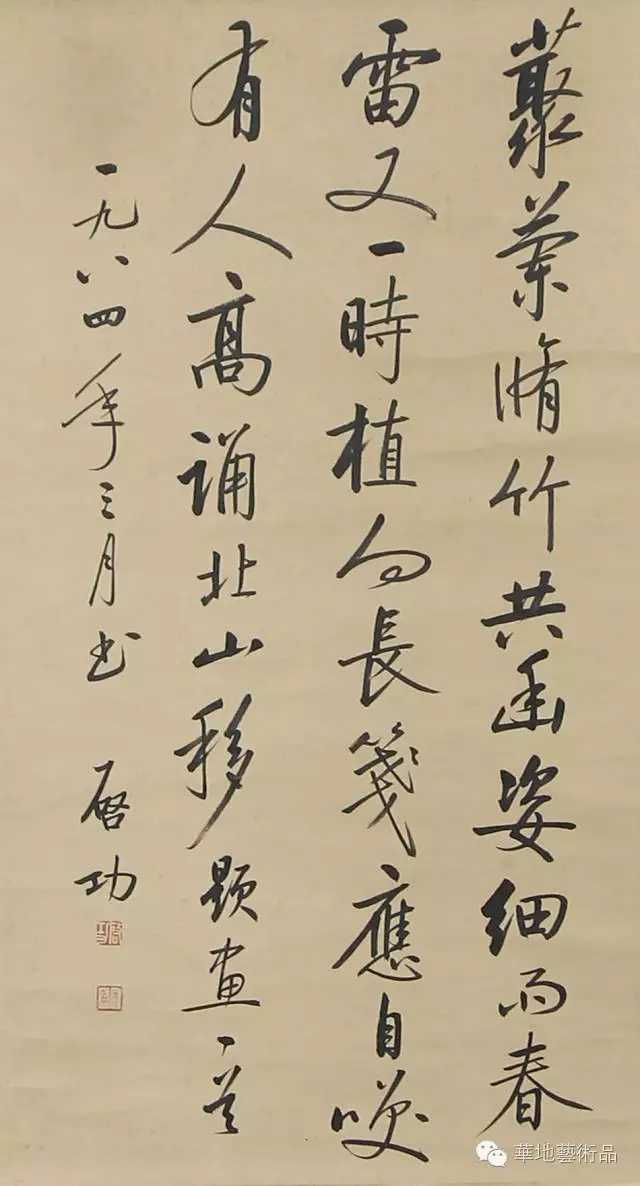 叢蘭脩竹共幽姿細雨春
雷又一時植向長箋應自咲
有人高誦北山移題畫一首
一九八四年三月书 启功
華地藝術品